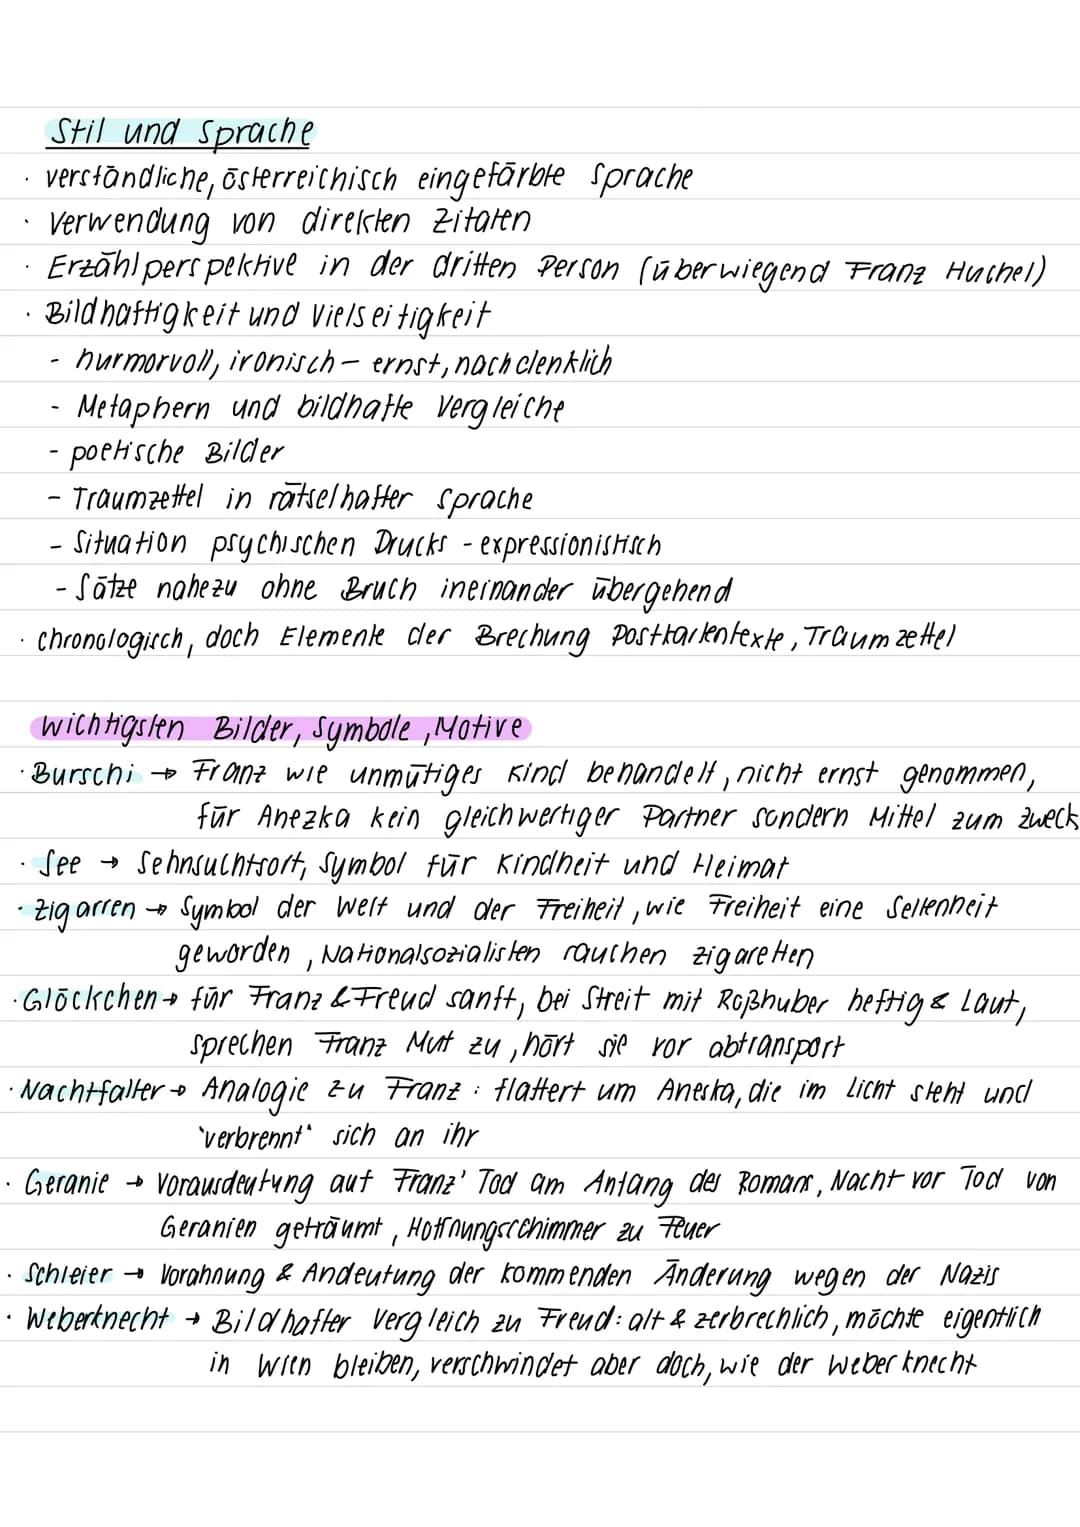 Stil und Sprache
· verständliche, österreichisch eingefärbte Sprache
· Verwendung von direkten Zitaten
· Erzählperspektive in der dritten Person (überwiegend Franz Huchel)
· Bildhaftigkeit und Vielseitigkeit
- hurmorvoll, ironisch – ernst, nachdenklich
- Metaphern und bildhafte Vergleiche
- poetische Bilder
- Traumzettel in rätselhafter Sprache
- Situation psychischen Drucks - expressionistisch
- Sätze nahezu ohne Bruch ineinander übergehend
· chronologisch, doch Elemente der Brechung Postkartentexte, Traumzettel
wichtigsten Bilder, Symbole, Motive
· Burschi → Franz wie unmütiges Kind behandelt, nicht ernst genommen,
für Anezka kein gleichwertiger Partner sondern Mittel zum Zweck
· See → Sehnsuchtsort, Symbol für Kindheit und Heimat
· Zigarren → Symbol der Welt und der Freiheit, wie Freiheit eine Seltenheit
geworden, Nationalsozialisten rauchen Zigaretten
· Glöckchen → für Franz & Freud sanft, bei Streit mit Roßhuber heftig & Laut,
sprechen Franz Mut zu, hört sie vor abtransport
· Nachtfalter → Analogie zu Franz : flattert um Aneska, die im Licht steht und
'verbrennt' sich an ihr
· Geranie → Vorausdeutung auf Franz' Tod am Anfang des Romans, Nacht vor Tod von
Geranien geträumt, Hoffnungsschimmer zu Feuer
· Schleier → Vorahnung & Andeutung der kommenden Änderung wegen der Nazis
· Weberknecht → Bildhafter Vergleich zu Freud: alt & zerbrechlich, möchte eigentlich
in Wien bleiben, verschwindet aber doch, wie der Weberknecht